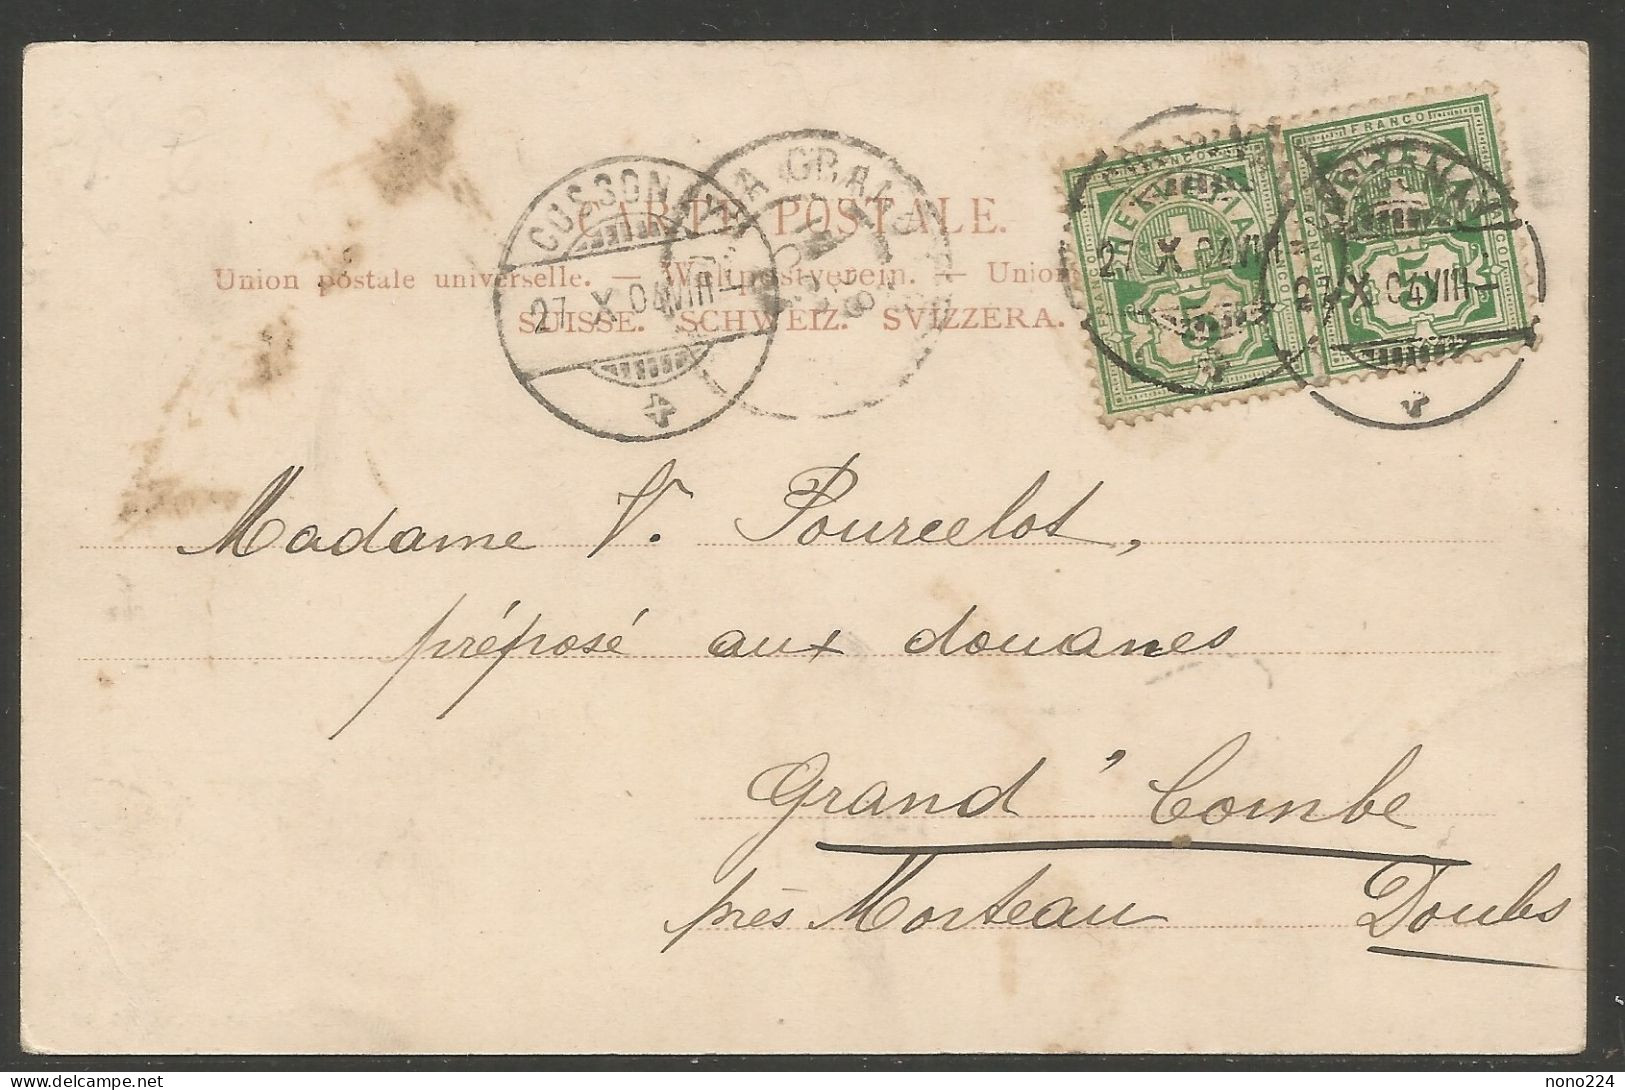 CARTE POSTALE.
Union postale universelle. — Weltpostverein. — Union
SUISSE. SCHWEIZ. SVIZZERA.
COSSONAY
27. X. 04. VIII –
LA GRAND
FRANCO
HELVETIA
27. X. 04. VIII –
5
FRANCO
27. X. 04. VIII –
5
Madame V. Pourcelot,
préposé aux douanes
Grand'Combe
près Morteau Doubs
delcampe.net
nono224